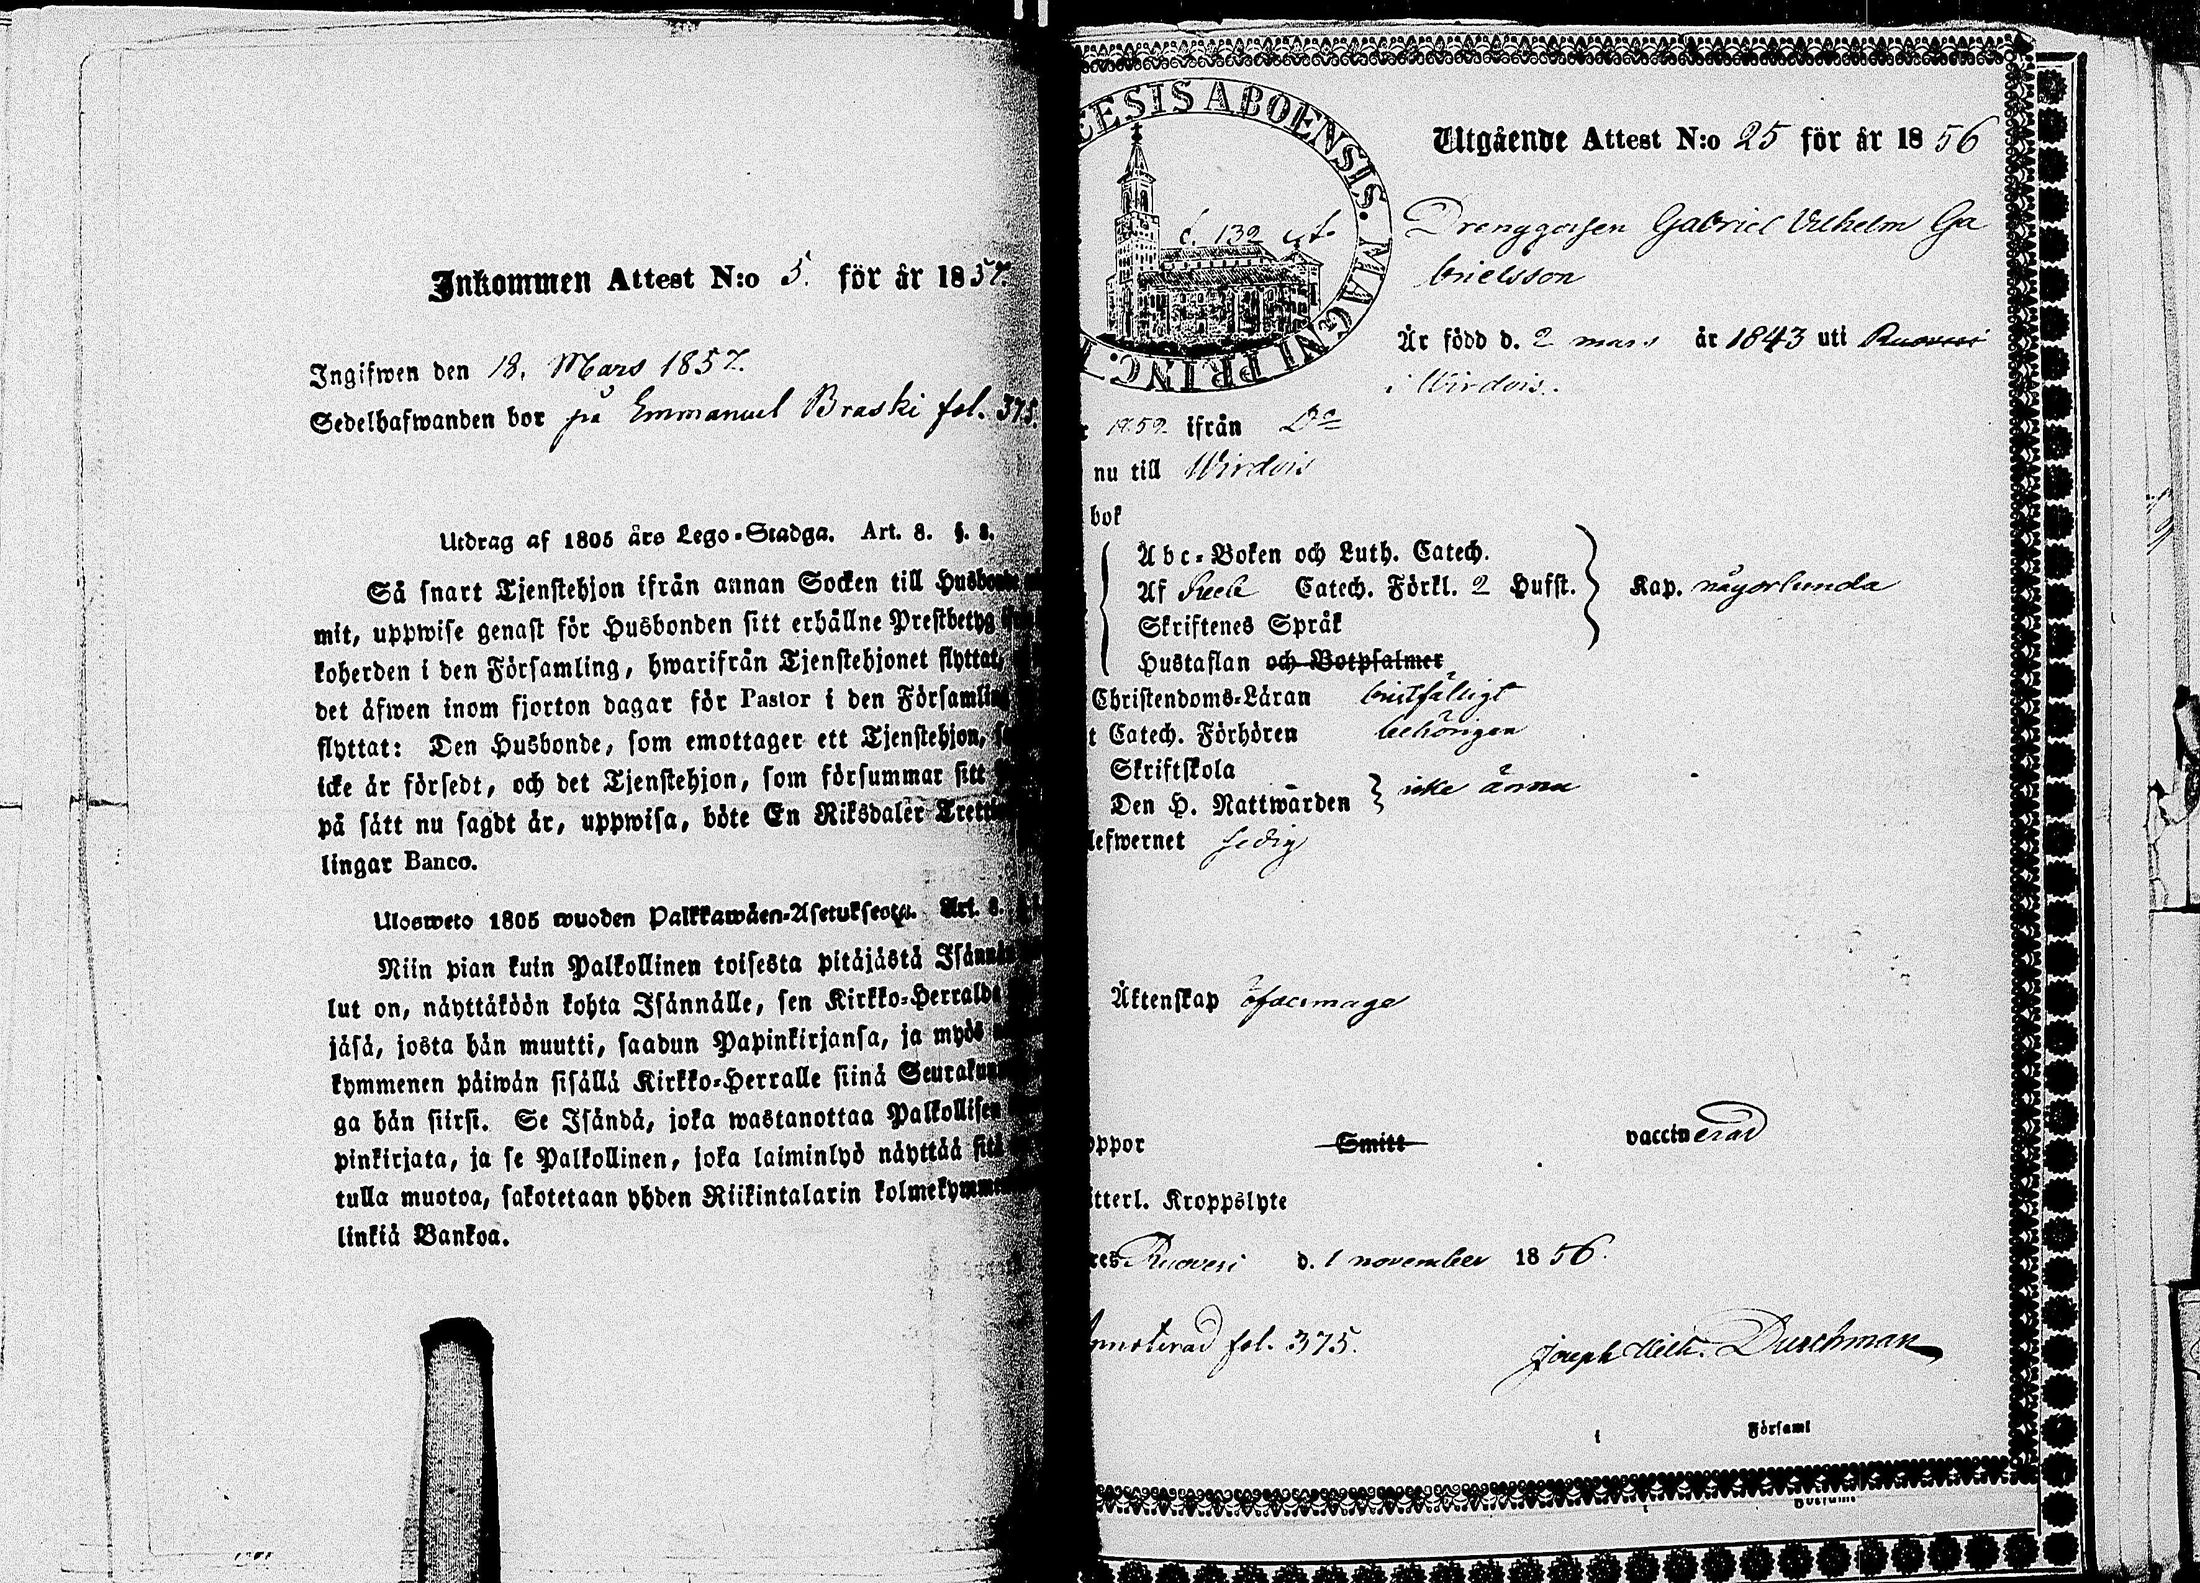 Inkommen Attest N:o 5. för år 1857.
Ingifwen den 18. Mars 1857.
Sedelhafwanden bor på Emmanuel Braski fol. 375.
Utdrag af 1805 års Lego-Stadga. Art. 8. §. 8.
Så snart Tjenstehjon ifrån annan Socken till
mit, uppwise genast för Husbonden sitt erhållne Prestbetyg
koherden i den Församling, hwarifrån Tjenstehjonet flyttat,
det äfwen inom fjorton dagar för Pastor i den
flyttat: Den Husbonde, som emottager ett Tjenstehjon,
icke är försedt, och det Tjenstehjon, som försummar sitt
på sätt nu sagdt är, uppwisa, böte En Riksdaler
lingar Banco.
Ulosweto 1805 wuoden Palkkawäen-Asetuksesta. Art. 8.
Niin pian kuin Palkollinen toisesta pitäjästä
lut on, näyttäköön kohta Isännälle, sen Kirkko-Herralda
jäsä, josta hän muutti, saadun Papinkirjansa, ja myös
kymmenen päiwän sisällä Kirkko-Herralle siinä
ga hän siirsi. Se Isändä, joka wastanottaa Palkollisen
pinkirjata, ja se Palkollinen, joka laiminlyö näyttää sitä
tulla muotoa, sakotetaan yhden Riikintalarin
linkiä Bankoa.
ESIS ABOENSIS. MAGNI PRINC.
f. 132
Utgående Attest N:o 25 för år 1856
Drenggossen Gabriel Vilhelm Ga
brielsson
Är född d. 2 mars år 1843 uti Ruovesi
i Wirdois.
1852 ifrån Do
nu till Wirdois
bok
Abc-Boken och Luth. Catech.
Af Catech. Förkl. 2 Hufst. Kap. någorlunda
Skriftenes Språk
Hustaflan och Botpsalmer
Christendoms-Läran enfälligt
t Catech. Förhören behörigen
Skriftskola
Den H. Nattwarden icke ännu
lefwernet sedig
Äktenskap oförmäga
oppor Smitt vaccinerad
itterl. Kroppslyte
res Ruovesi d. 1 november 1856.
Annoterad fol. 375.
Joseph Wilh. Durchman
i Församl